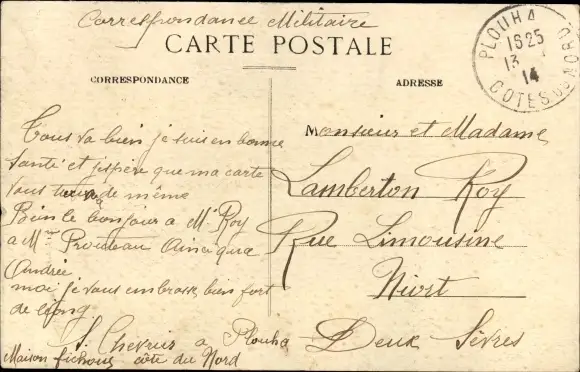 Correspondance Militaire
CARTE POSTALE
PLOUHA
1625
13
14
COTES DU NORD
CORRESPONDANCE
ADRESSE
Tous va bien je suis en bonne
santé et j'espère que ma carte
vous de même
Bien le bonjour a Mr Roy
a Mme Prouteau Ainsi que
Andrée
moi je vous embrasse bien fort
de
S. a Plouha
Maison côte du Nord
Monsieur et Madame
Lamberton Roy
Rue Limousine
Niort
Deux Sèvres